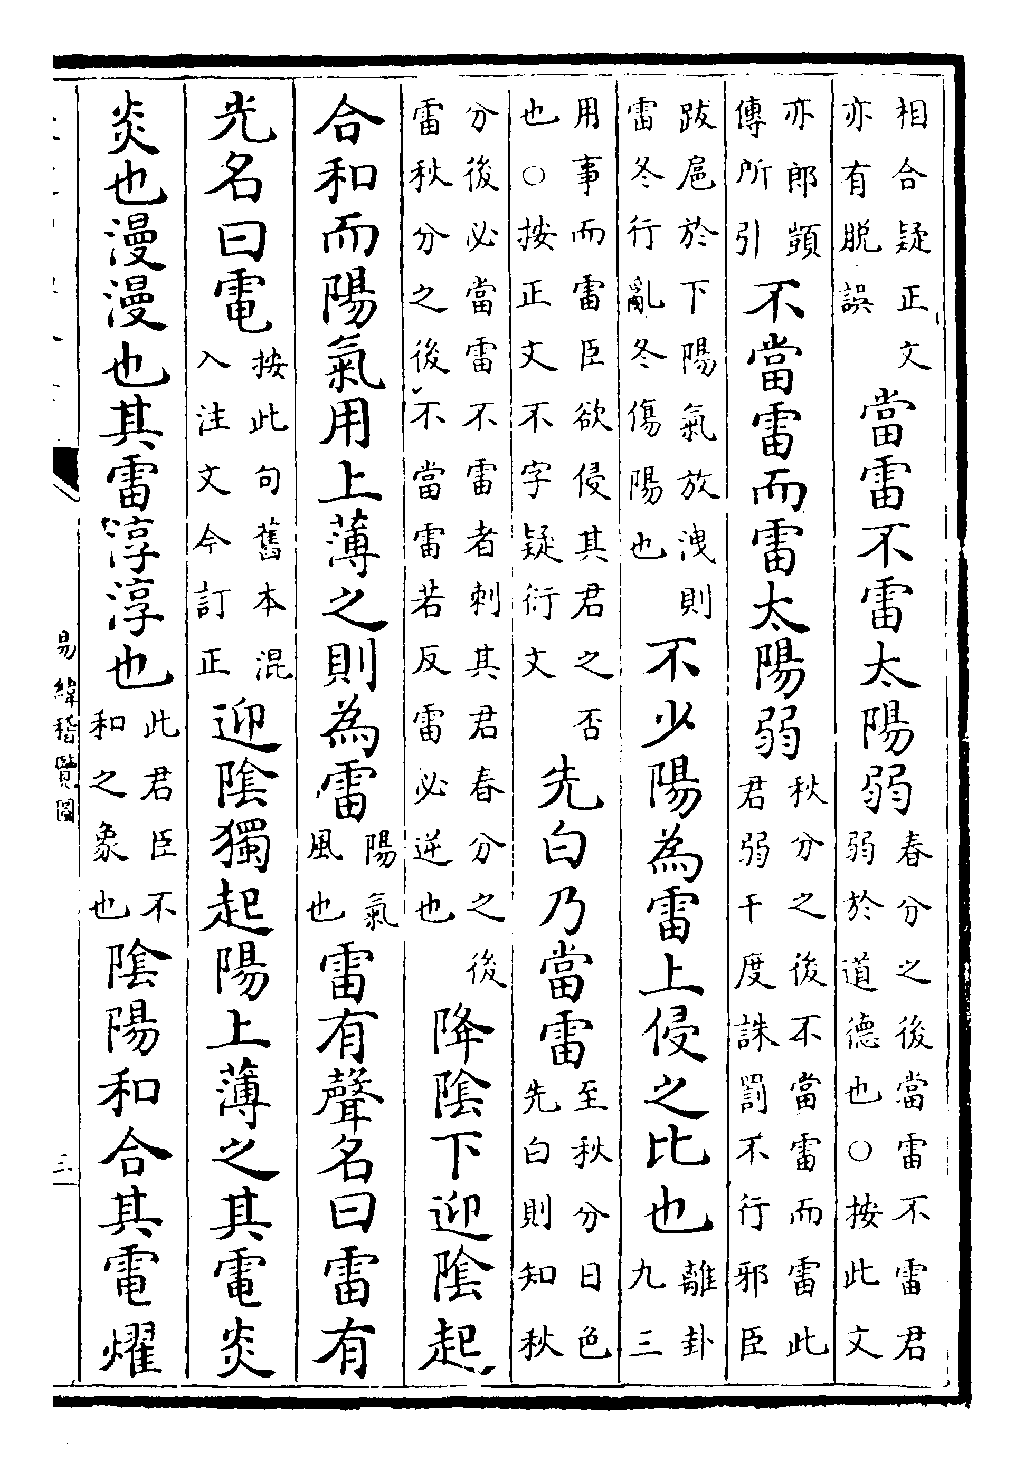 相合疑正文亦有脱誤當雷不雷太陽弱春分之後當雷不雷君弱於道德也○按此文
亦郎顗傳所引不當雷而雷太陽弱秋分之後不當雷而雷此君弱干度誅罰不行邪臣
跋扈於下陽氣放洩則雷冬行亂冬傷陽也不少陽為雷上侵之比也離卦九三
用事而雷臣欲侵其君之否也○按正文不字疑衍文先白乃當雷至秋分日色先白則知秋
分後必當雷不雷者刺其君春分之後雷秋分之後不當雷若反雷必逆也降陰下迎陰起
合和而陽氣用上薄之則為雷陽氣風也雷有聲名曰雷有
光名曰電按此句舊本混入注文今訂正迎陰獨起陽上薄之其電炎
炎也漫漫也其雷淳淳也此君臣不和之象也陰陽和合其電燿
易緯稽覽圖
三